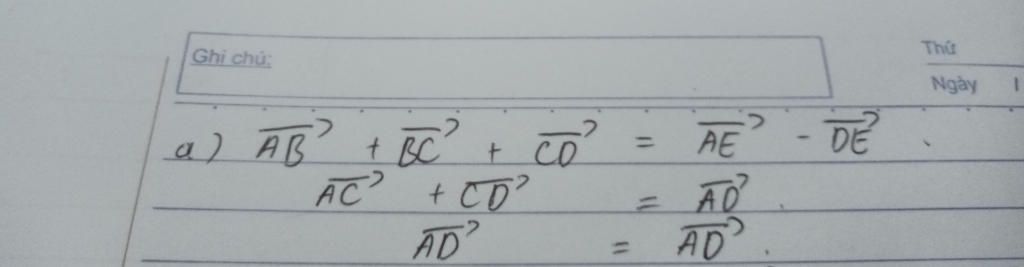 Ghi chú:
Thứ
Ngày
a) $\overrightarrow{AB} + \overrightarrow{BC} + \overrightarrow{CD} = \overrightarrow{AE} - \overrightarrow{DE}$.
$\overrightarrow{AC} + \overrightarrow{CD} = \overrightarrow{AD}$.
$\overrightarrow{AD} = \overrightarrow{AD}$.